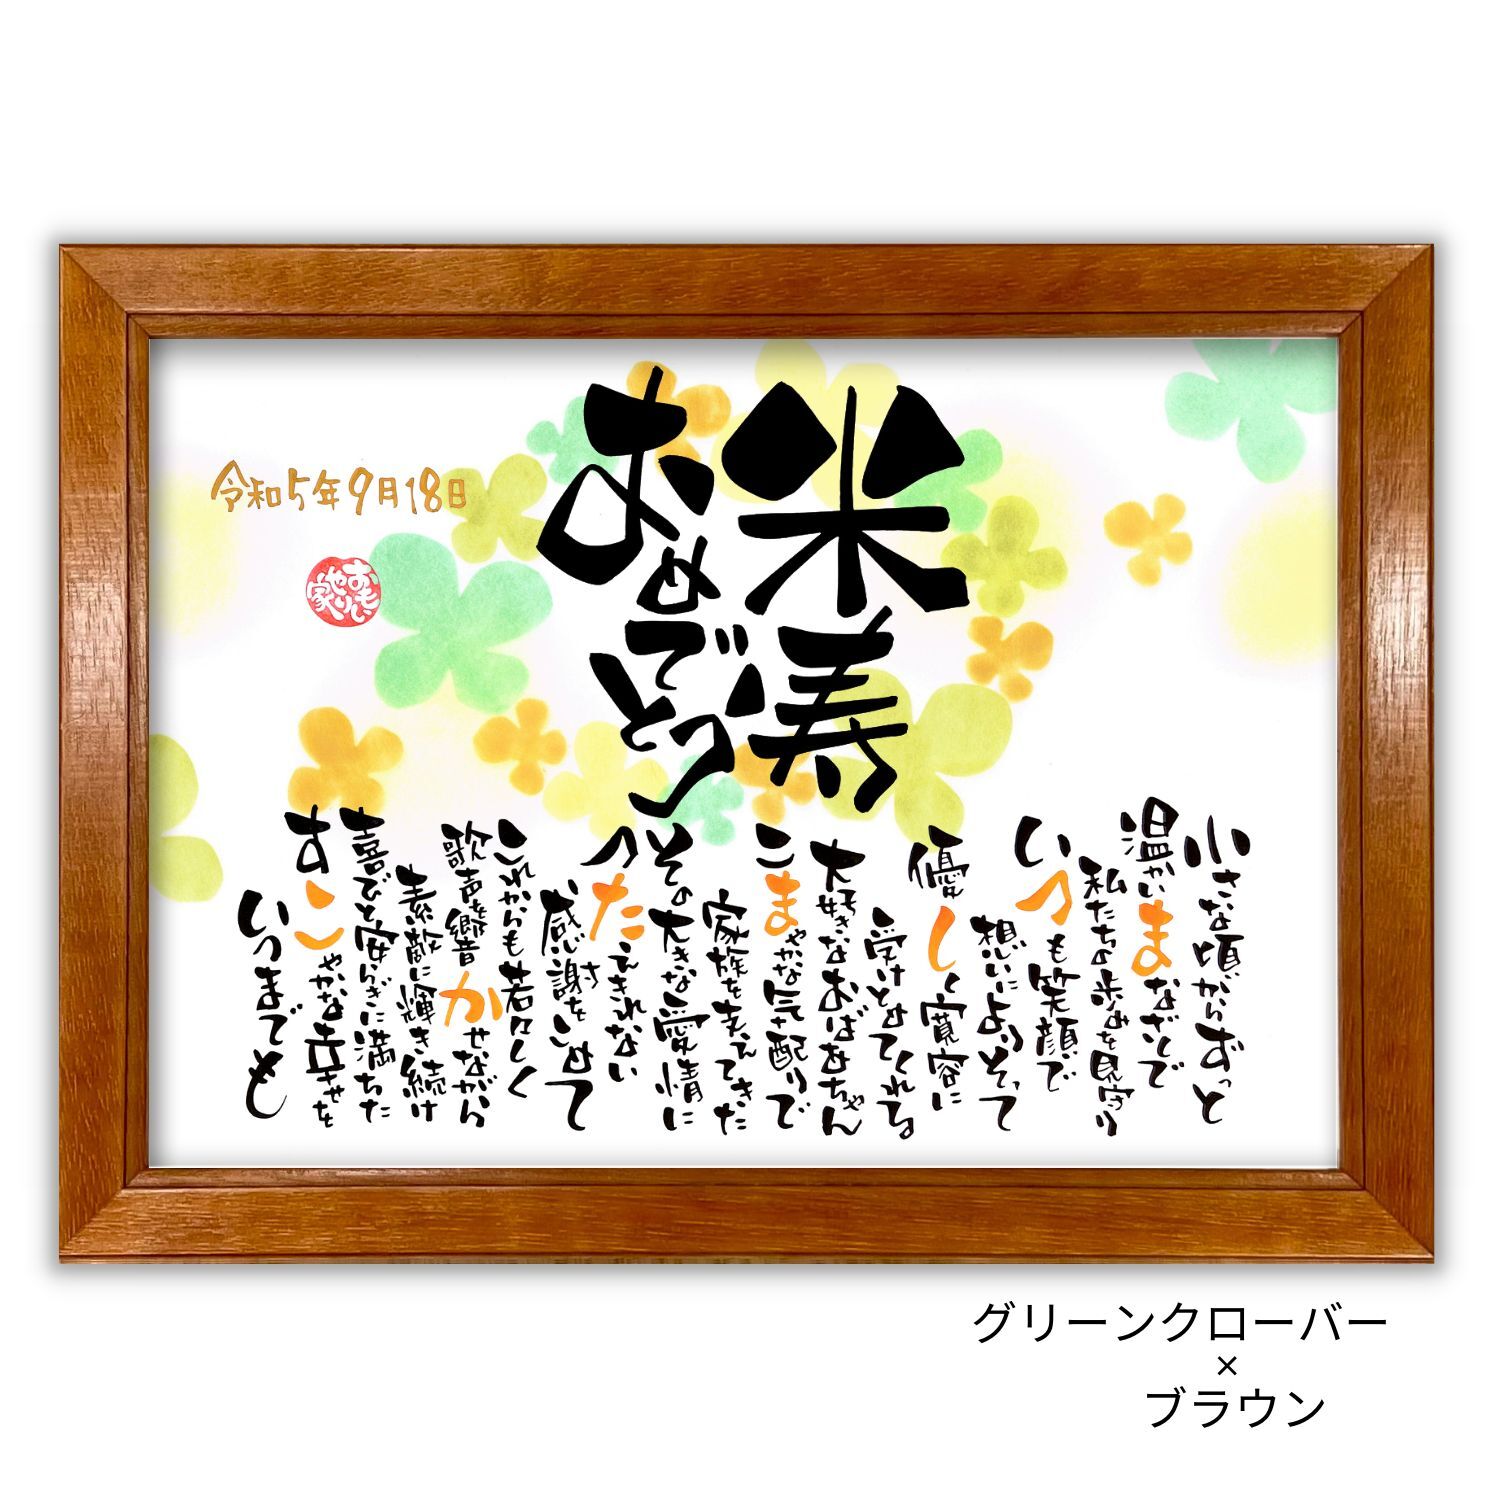 米寿
おめでとう
令和5年9月18日
おもいやり家
小さな頃からずっと
温かいまなざしで
私たちの歩みを見守り
いつも笑顔で
想いによりそって
優しく寛容に
受けとめてくれる
大好きなおばあちゃん
こまやかな気配りで
家族を支えてきた
その大きな愛情に
つたえきれない
感謝をこめて
これからも若々しく
歌声を響かせながら
素敵に輝き続け
喜びと安らぎに満ちた
すこやかな幸せを
いつまでも
グリーンクローバー
×
ブラウン